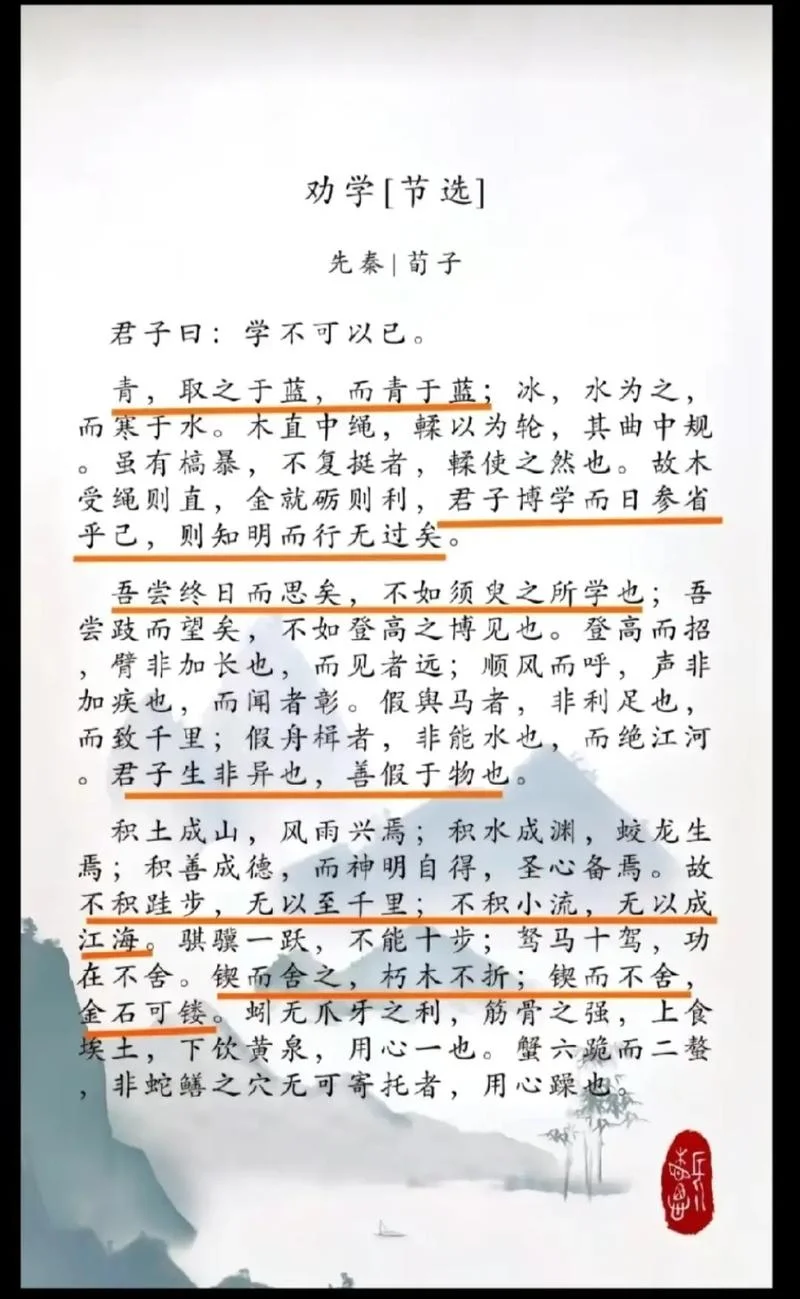 劝学[节选]
先秦|荀子
君子曰：学不可以已。
青，取之于蓝，而青于蓝；冰，水为之，
而寒于水。木直中绳，輮以为轮，其曲中规
。虽有槁暴，不复挺者，輮使之然也。故木
受绳则直，金就砺则利，君子博学而日参省
乎己，则知明而行无过矣。
吾尝终日而思矣，不如须臾之所学也；吾
尝跂而望矣，不如登高之博见也。登高而招
，臂非加长也，而见者远；顺风而呼，声非
加疾也，而闻者彰。假舆马者，非利足也，
而致千里；假舟楫者，非能水也，而绝江河
。君子生非异也，善假于物也。
积土成山，风雨兴焉；积水成渊，蛟龙生
焉；积善成德，而神明自得，圣心备焉。故
不积跬步，无以至千里；不积小流，无以成
江海。骐骥一跃，不能十步；驽马十驾，功
在不舍。锲而舍之，朽木不折；锲而不舍，
金石可镂。蚓无爪牙之利，筋骨之强，上食
埃土，下饮黄泉，用心一也。蟹六跪而二螯
，非蛇鳝之穴无可寄托者，用心躁也。